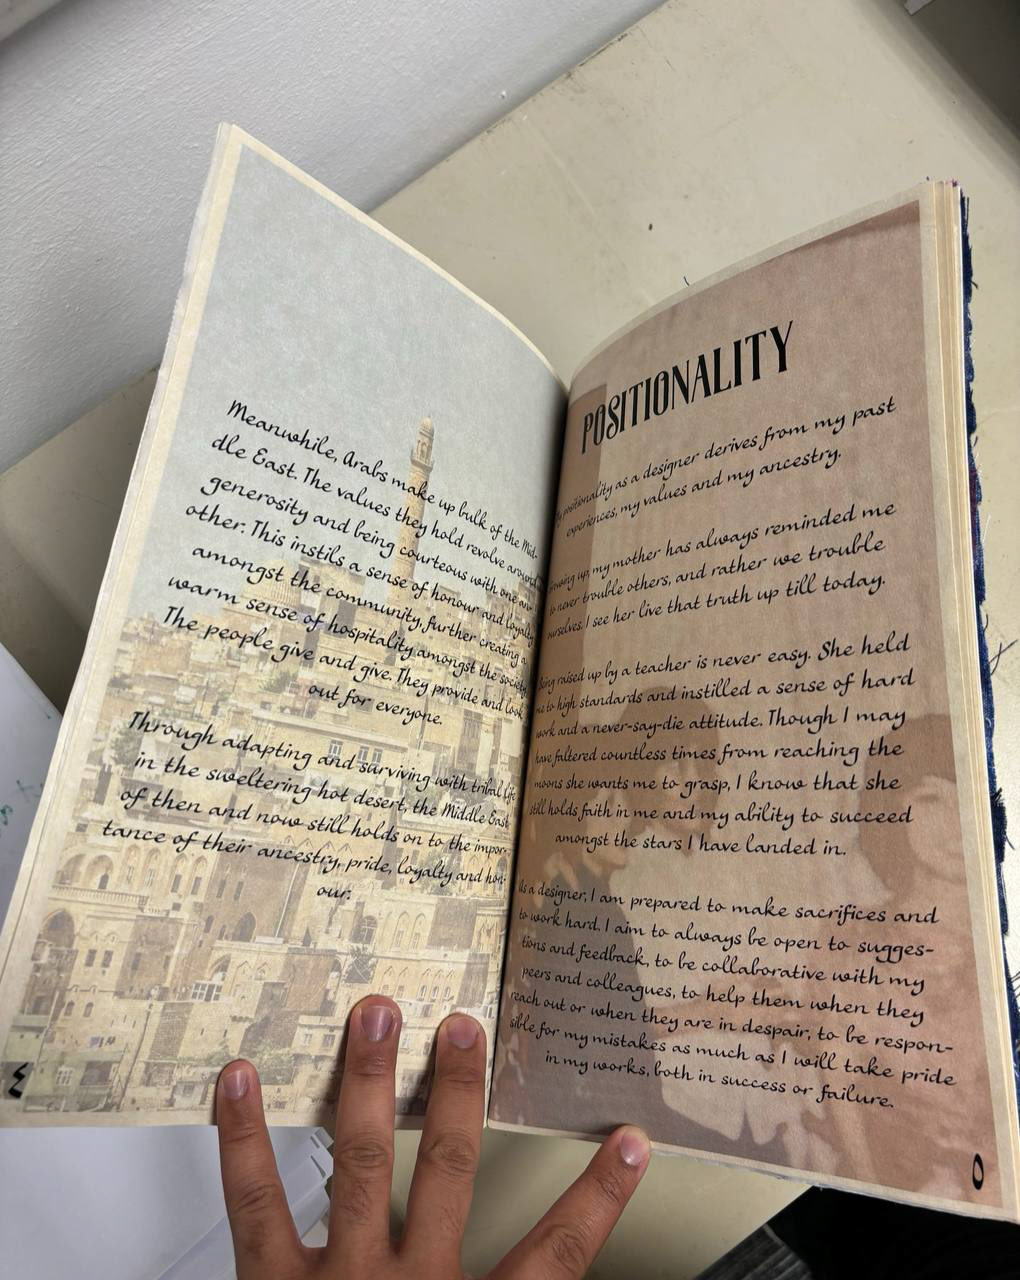 Meanwhile, Arabs make up bulk of the Mid-
dle East. The values they hold revolve around
generosity and being courteous with one an-
other. This instils a sense of honour and loyalty
amongst the community, further creating a
warm sense of hospitality amongst the society.
The people give and give. They provide and look
out for everyone.
Through adapting and surviving with tribal life
in the sweltering hot desert, the Middle East
of then and now still holds on to the impor-
tance of their ancestry, pride, loyalty and hon-
our.
POSITIONALITY
My positionality as a designer derives from my past
experiences, my values and my ancestry.
Growing up, my mother has always reminded me
to never trouble others, and rather we trouble
ourselves. I see her live that truth up till today.
Being raised up by a teacher is never easy. She held
me to high standards and instilled a sense of hard
work and a never-say-die attitude. Though I may
have faltered countless times from reaching the
moons she wants me to grasp, I know that she
still holds faith in me and my ability to succeed
amongst the stars I have landed in.
As a designer, I am prepared to make sacrifices and
to work hard. I aim to always be open to sugges-
tions and feedback, to be collaborative with my
peers and colleagues, to help them when they
reach out or when they are in despair, to be respon-
sible for my mistakes as much as I will take pride
in my works, both in success or failure.